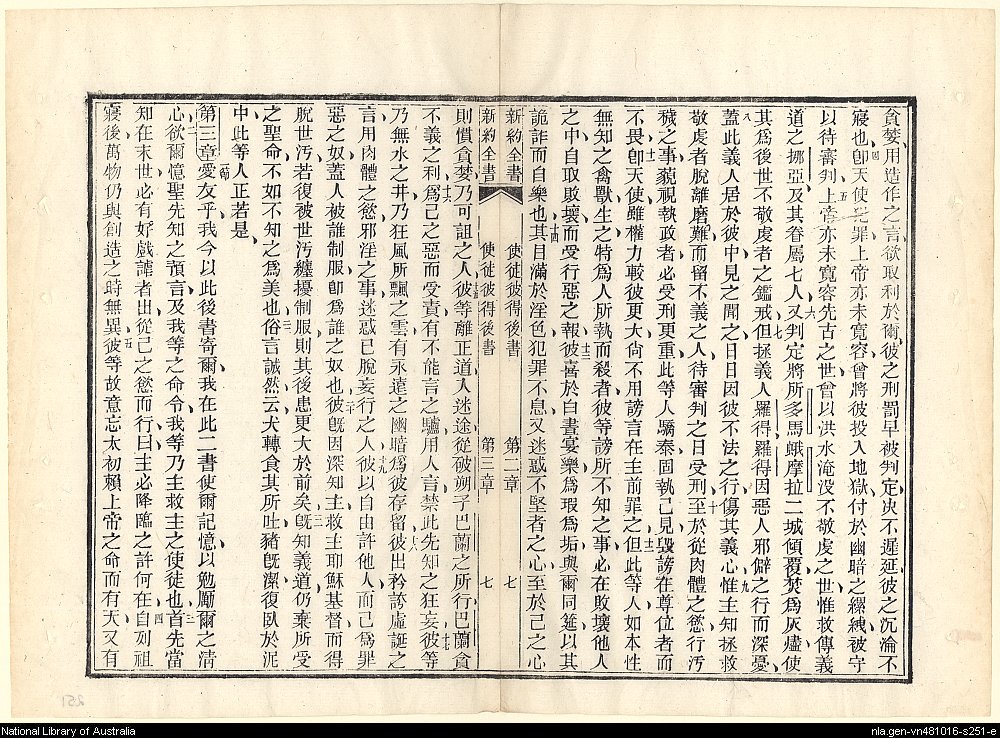 貪婪用造作之言欲取利於爾彼之刑罰早被判定此不遲延彼之沉淪不
寢也四卽天使犯罪上帝亦未寬容曾將彼投入地獄付於幽暗之縲絏被守
以待審判五上帝亦未寬容先古之世曾以洪水淹沒不敬虔之世惟救傳義
道之挪亞及其眷屬七人六又判定將所多馬蛾摩拉二城傾覆焚爲灰燼使
其爲後世不敬虔者之鑑戒七但拯義人羅得羅得因惡人邪僻之行而深憂
八蓋此義人居於彼中見之聞之日日因彼不法之行傷其義心九惟主知拯救
敬虔者脫離磨難而留不義之人待審判之日受刑十至於從肉體之慾行污
穢之事藐視執政者必受刑更重此等人驕泰固執己見毀謗在尊位者而
不畏十一卽天使雖權力較彼更大尙不用謗言在主前罪之十二但此等人如本性
無知之禽獸生之特爲人所執而殺者彼等謗所不知之事必在敗壞他人
之中自取敗壞十三而受行惡之報彼喜於白晝宴樂爲瑕爲垢與爾同筵以其
詭詐而自樂也十四其目滿於淫色犯罪不息又迷惑不堅者之心至於己之心
新約全書 使徒彼得後書 第二章 七
新約全書 使徒彼得後書 第三章 七
則慣貪婪乃可詛之人十五彼等離正道人迷途從彼朔子巴蘭之所行巴蘭貪
不義之利十六爲己之惡而受責有不能言之驢用人言禁此先知之狂妄十七彼等
乃無水之井乃狂風所飄之雲有永遠之幽暗爲彼存留十八彼出矜誇虛誕之
言用肉體之慾邪淫之事迷惑已脫妄行之人十九彼以自由許他人而己爲罪
惡之奴蓋人被誰制服卽爲誰之奴也二十彼旣因深知主救主耶穌基督而得
脫世汚若復被世汚纏擾制服則其後患更大於前矣二一旣知義道仍棄所受
之聖命不如不知之爲美也二二俗言誠然云犬轉食其所吐豬旣潔復臥於泥
中此等人正若是
第三章一節愛友乎我今以此後書寄爾我在此二書使爾記憶以勉勵爾之清
心二欲爾憶聖先知之預言及我等之命令我等乃主救主之使徒也三首先當
知在末世必有好戲謔者出從己之慾而行四曰主必降臨之許何在自列祖
寢後萬物仍與創造之時無異五彼等故意忘太初賴上帝之命而有天又有
251
National Library of Australia
nla.gen-vn481016-s251-e